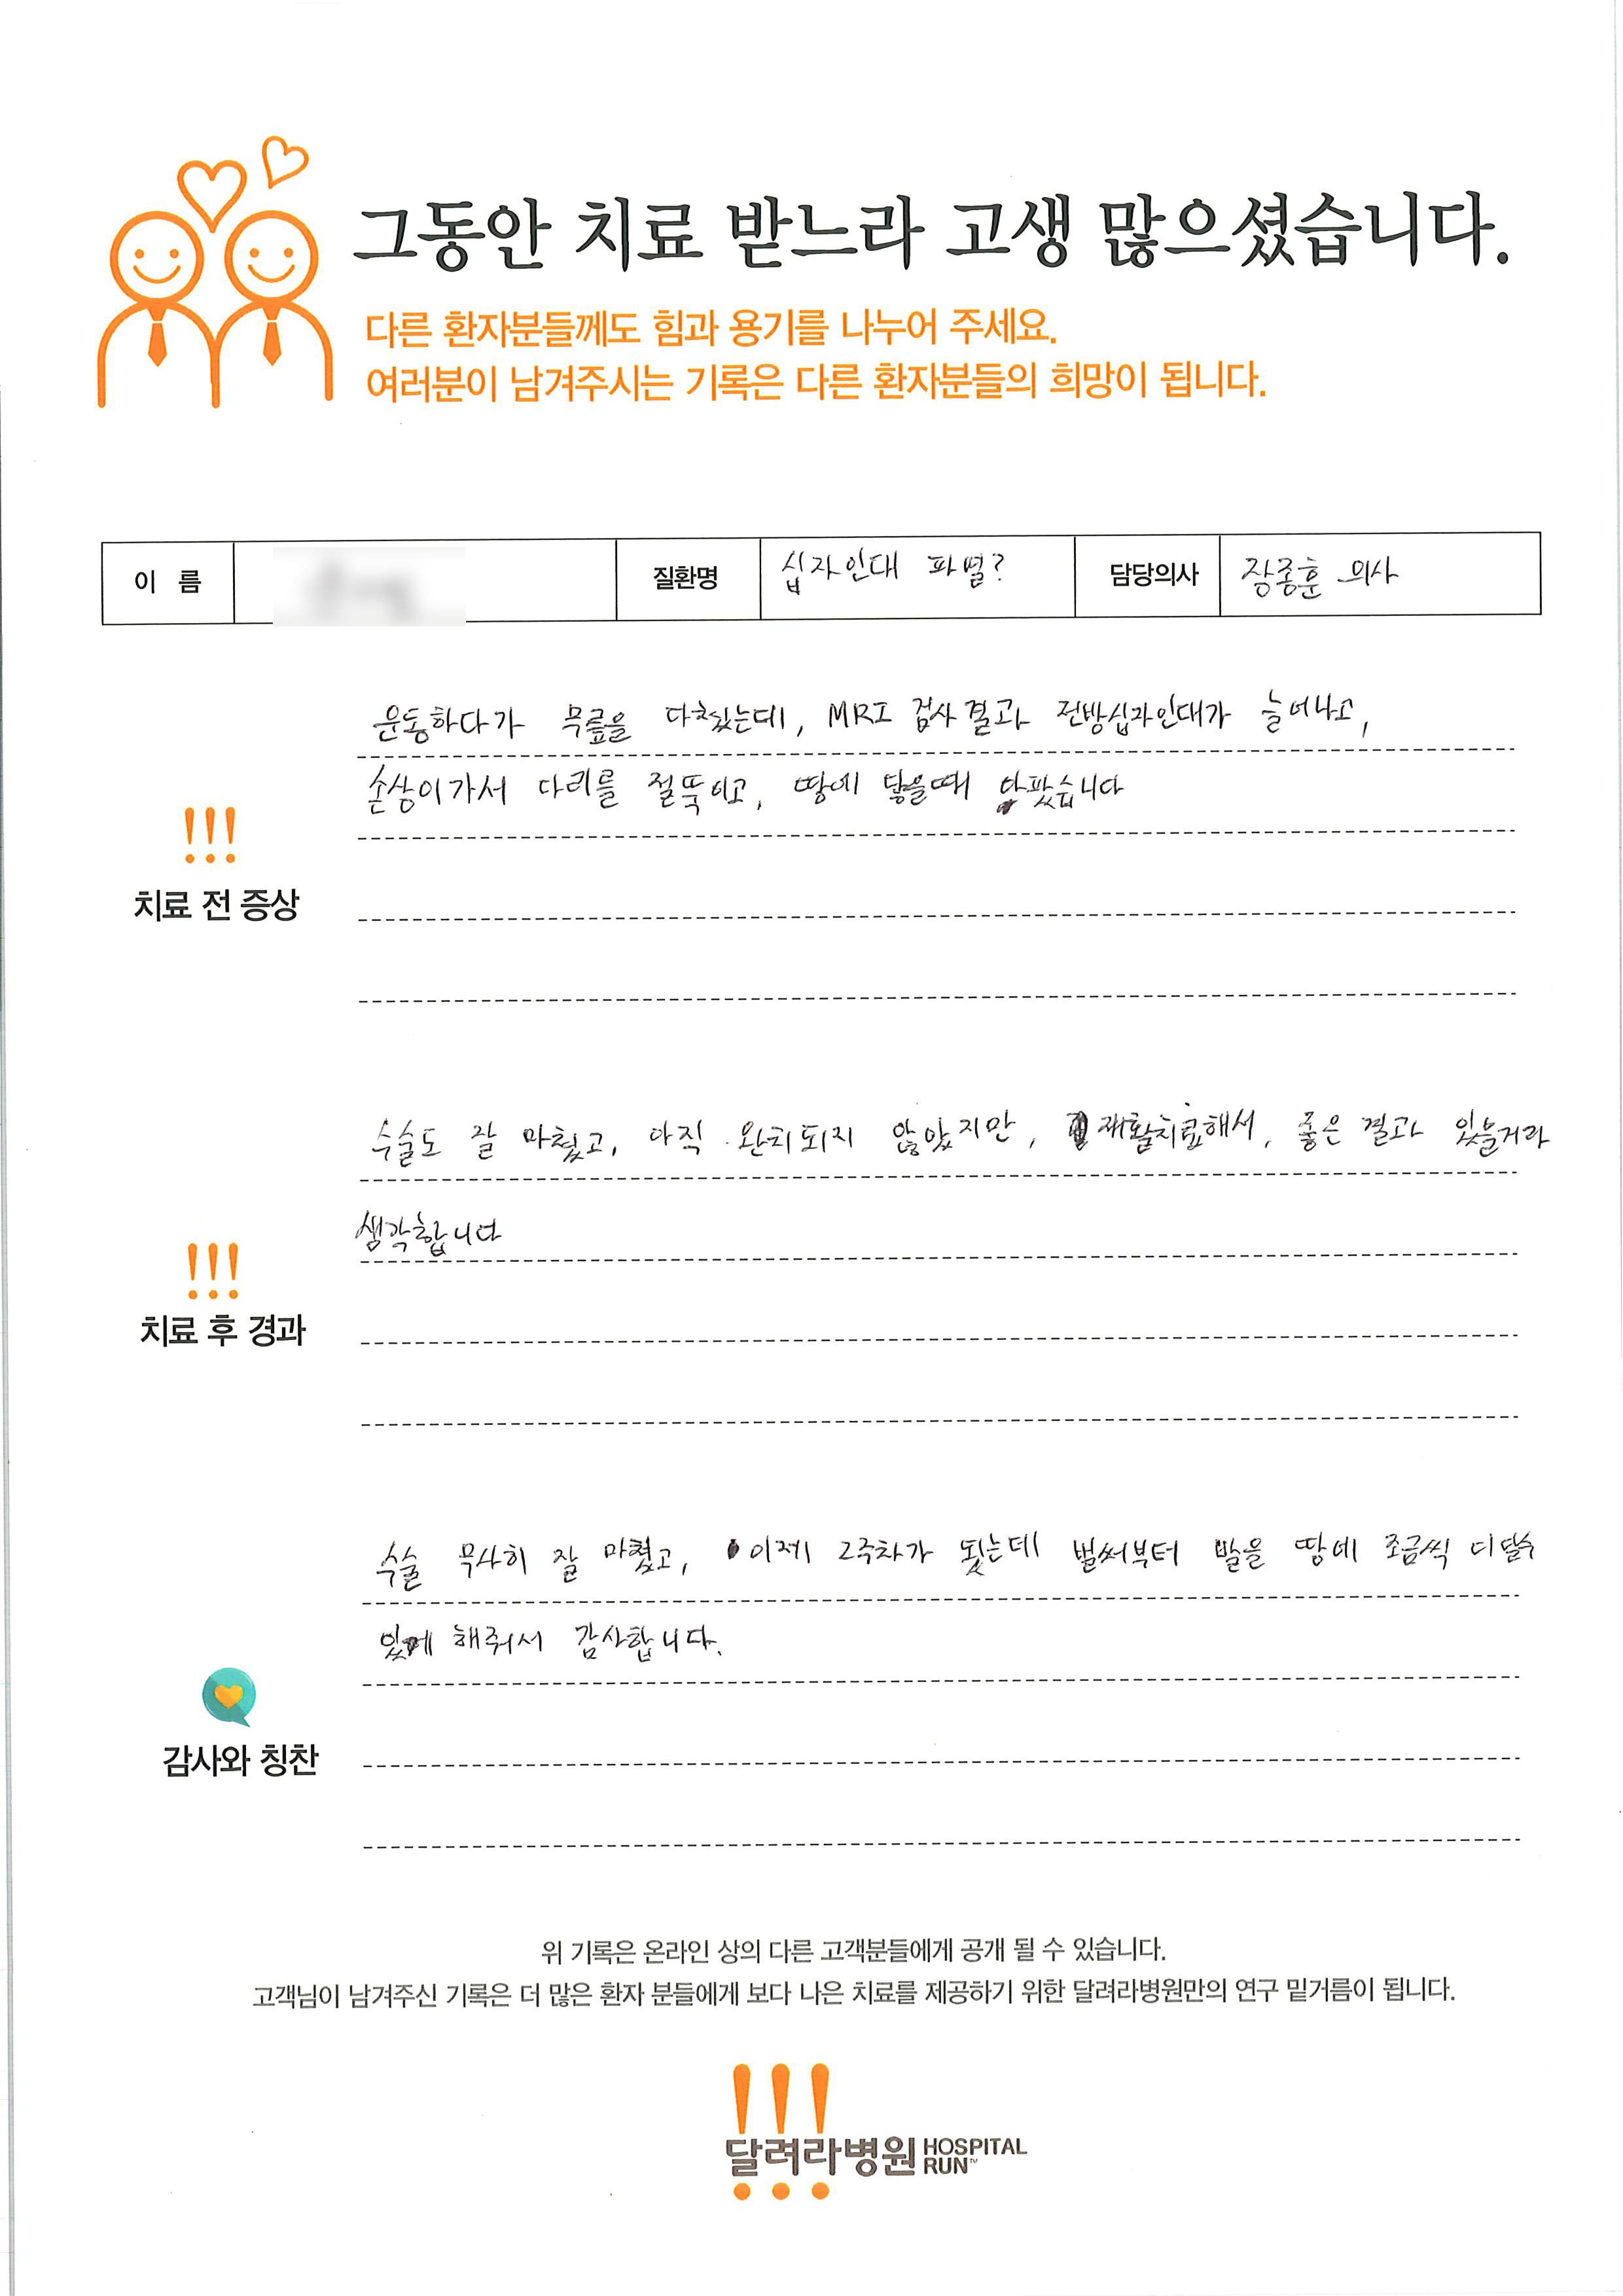 그동안 치료 받느라 고생 많으셨습니다.
다른 환자분들께도 힘과 용기를 나누어 주세요.
여러분이 남겨주시는 기록은 다른 환자분들의 희망이 됩니다.
이 름 질환명 십자인대 파열? 담당의사 장종훈 의사
운동하다가 무릎을 다쳤는데, MRI 검사결과 전방십자인대가 늘어나고,
손상이가서 다리를 절뚝이고, 땅에 닿을때 아팠습니다
!!!
치료 전 증상
수술도 잘 마쳤고, 아직 완치되지 않았지만, 재활치료해서, 좋은 결과 있을거라
생각합니다
!!!
치료 후 경과
수술 무사히 잘 마쳤고, 이제 2주차가 됬는데 벌써부터 발을 땅에 조금씩 디딜수
있게 해줘서 감사합니다.
감사와 칭찬
위 기록은 온라인 상의 다른 고객분들에게 공개 될 수 있습니다.
고객님이 남겨주신 기록은 더 많은 환자 분들에게 보다 나은 치료를 제공하기 위한 달려라병원만의 연구 밑거름이 됩니다.
달려라병원 HOSPITAL RUN™